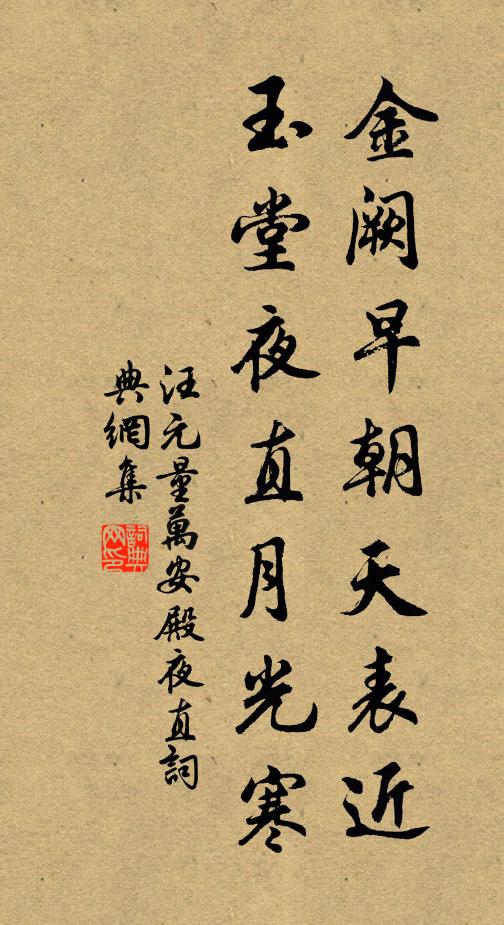 金闕早朝天表近
玉堂夜直月光寒
汪元量萬安殿夜直詞
典網集
詞典
网印